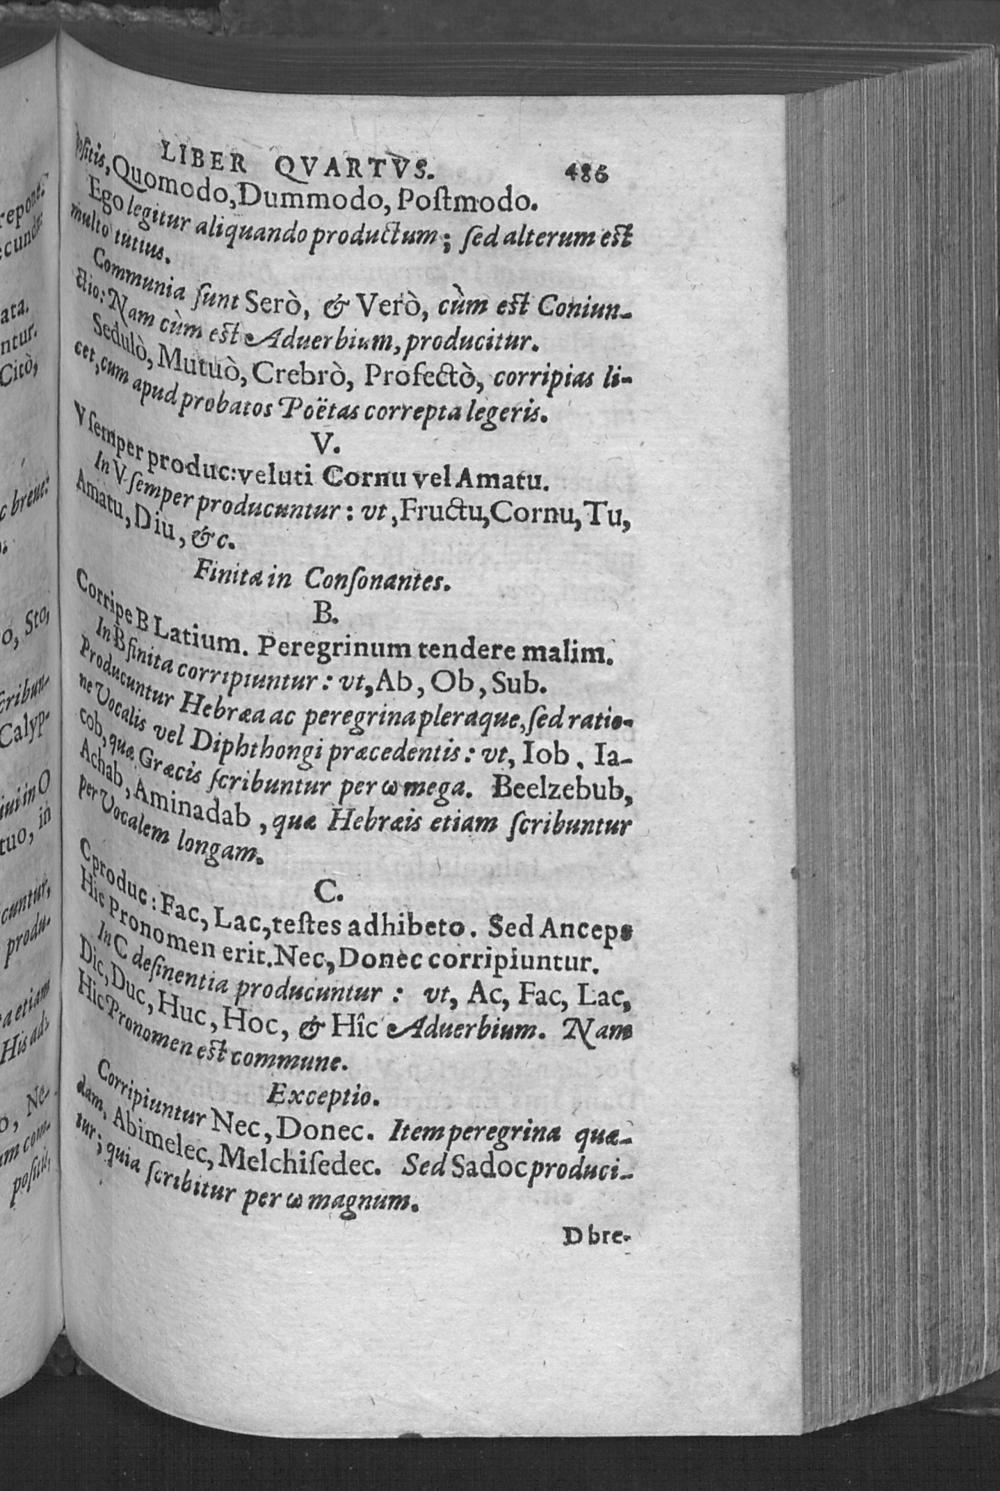 LIBER QVARTVS. 486
positis, Quomodo, Dummodo, Poſtmodo.
Ego legitur aliquando productum; ſed alterum eſt
multo tutius.
Communia ſunt Serò, & Verò, cùm eſt Coniun-
ctio: Nam cùm eſt Aduerbium, producitur.
Sedulò, Mutuò, Crebrò, Profectò, corripias li-
cet, cum apud probatos Poëtas correpta legeris.
V.
V ſemper produc: veluti Cornu vel Amatu.
In V ſemper producuntur: vt, Fructu, Cornu, Tu,
Amatu, Diu, &c.
Finita in Conſonantes.
B.
Corripe B Latium. Peregrinum tendere malim.
In B finita corripiuntur: vt, Ab, Ob, Sub.
Producuntur Hebræa ac peregrina pleraque, ſed ratio-
ne Vocalis vel Diphthongi præcedentis: vt, Iob, Ia-
cob, quæ Græcis ſcribuntur per ω mega. Beelzebub,
Achab, Aminadab, quæ Hebræis etiam ſcribuntur
per Vocalem longam.
C.
C produc: Fac, Lac, teſtes adhibeto. Sed Anceps
Hic Pronomen erit. Nec, Donec corripiuntur.
In C deſinentia producuntur: vt, Ac, Fac, Lac,
Dic, Duc, Huc, Hoc, & Hîc Aduerbium. Nam
Hic Pronomen eſt commune.
Exceptio.
Corripiuntur Nec, Donec. Item peregrina quæ-
dam, Abimelec, Melchiſedec. Sed Sadoc produci-
tur; quia ſcribitur per ω magnum.
D bre-
repone:
ecunde:
ata.
ntur.
Citò,
c breue:
o, Sto,
cribun-
Calyp-
iui in O
tuo, in
cuntur,
produ-
a etiam
His ad-
o, Ne-
m com-
poſitis,